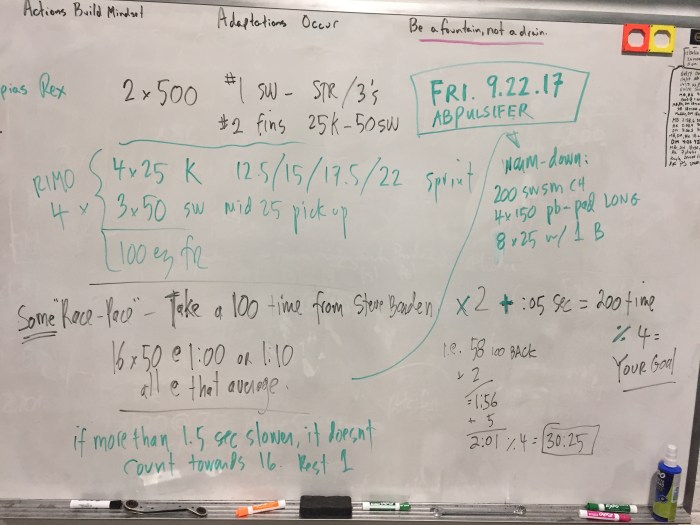 Actions Build Mindset
Adaptations Occur
Be a fountain, not a drain.
pias Rex
2 x 500 #1 SW - STR/3's
#2 fins 25K-50SW
FRI. 9.22.17
ABPULSIFER
RIMO
4 x
4x25 K 12.5/15/17.5/22 sprint
3x50 SW mid 25 pick up
100 ez fr
warm-down:
200 SWSM CH
4x150 pb-pad LONG
8x25 w/ 1 B
Some "Race-Pace" - Take a 100 time from Steve Bowden x2 + :05 sec = 200 time
% 4 =
YOUR GOAL
16 x 50 @ 1:00 OR 1:10
all @ that average.
i.e. 58 100 BACK
x 2
=1:56
+ 5
2:01 % 4 = 30.25
if more than 1.5 sec slower, it doesnt
count towards 16. Rest 1